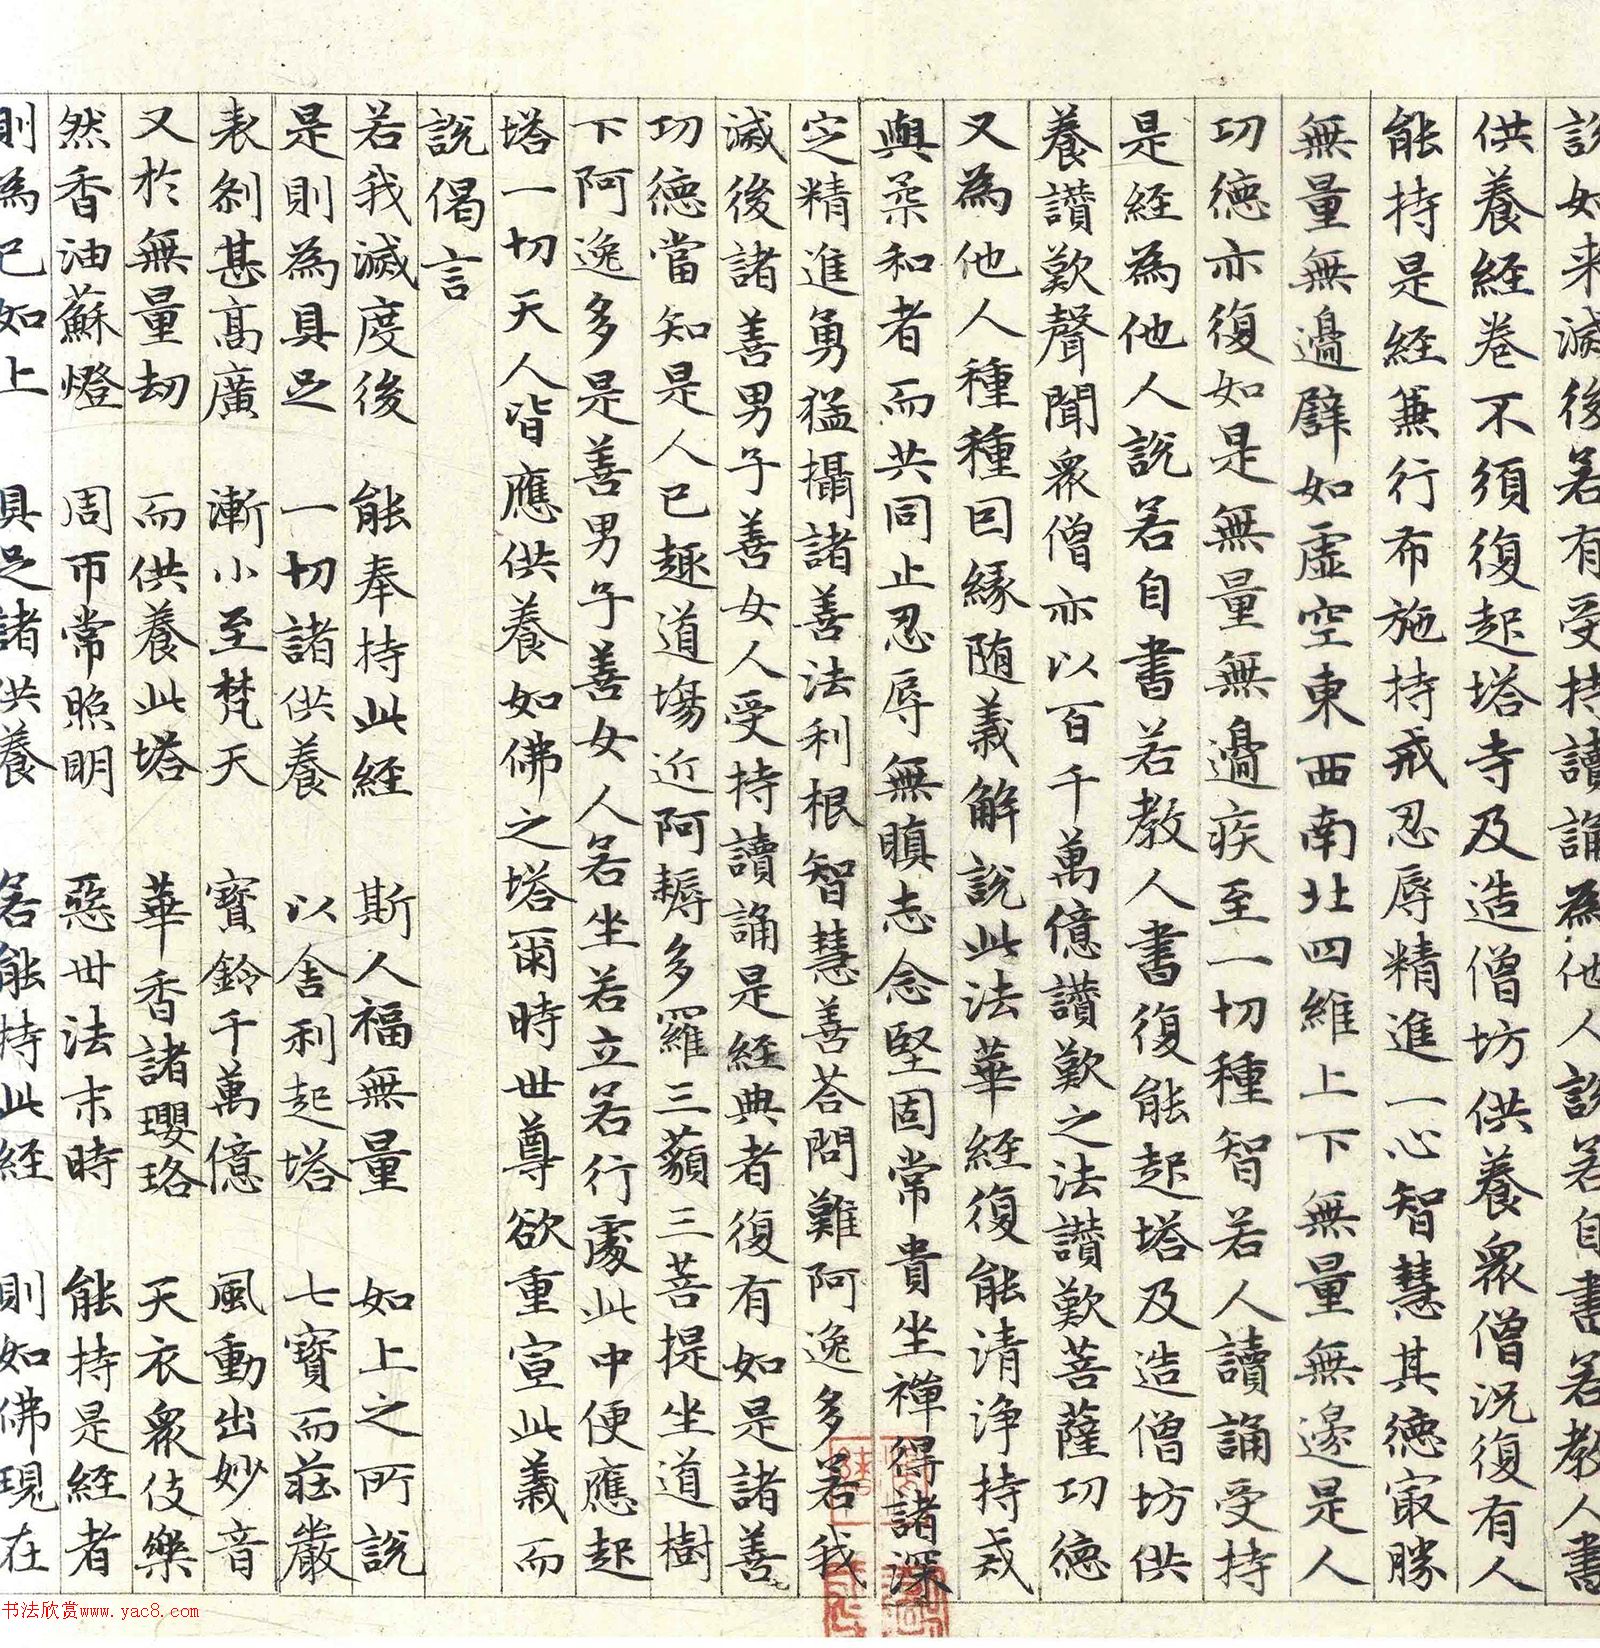 說如来滅後若有受持讀誦為他人說若自書若教人書
供養經卷不須復起塔寺及造僧坊供養衆僧況復有人
能持是經兼行布施持戒忍辱精進一心智慧其德㝡勝
無量無邊譬如虛空東西南北四維上下無量無邊是人
功德亦復如是無量無邊疾至一切種智若人讀誦受持
是經為他人說若自書若教人書復能起塔及造僧坊供
養讃歎聲聞衆僧亦以百千萬億讃歎之法讃歎菩薩功德
又為他人種種因緣随義解說此法華經復能清浄持戒
與柔和者而共同止忍辱無瞋志念堅固常貴坐禪得諸深
定精進勇猛攝諸善法利根智慧善荅問難阿逸多若我
滅後諸善男子善女人受持讀誦是經典者復有如是諸善
功德當知是人已趣道場近阿耨多羅三藐三菩提坐道樹
下阿逸多是善男子善女人若坐若立若行處此中便應起
塔一切天人皆應供養如佛之塔爾時世尊欲重宣此義而
說偈言
若我滅度後 能奉持此經 斯人福無量 如上之所說
是則為具足 一切諸供養 以舎利起塔 七寶而莊嚴
表刹甚髙廣 漸小至梵天 寳鈴千萬億 風動出妙音
又於無量劫 而供養此塔 華香諸瓔珞 天衣衆伎樂
然香油蘇燈 周帀常照明 惡世法末時 能持是經者
則為已如上 具足諸供養 若能持此經 則如佛現在
书法欣赏www.yac8.com